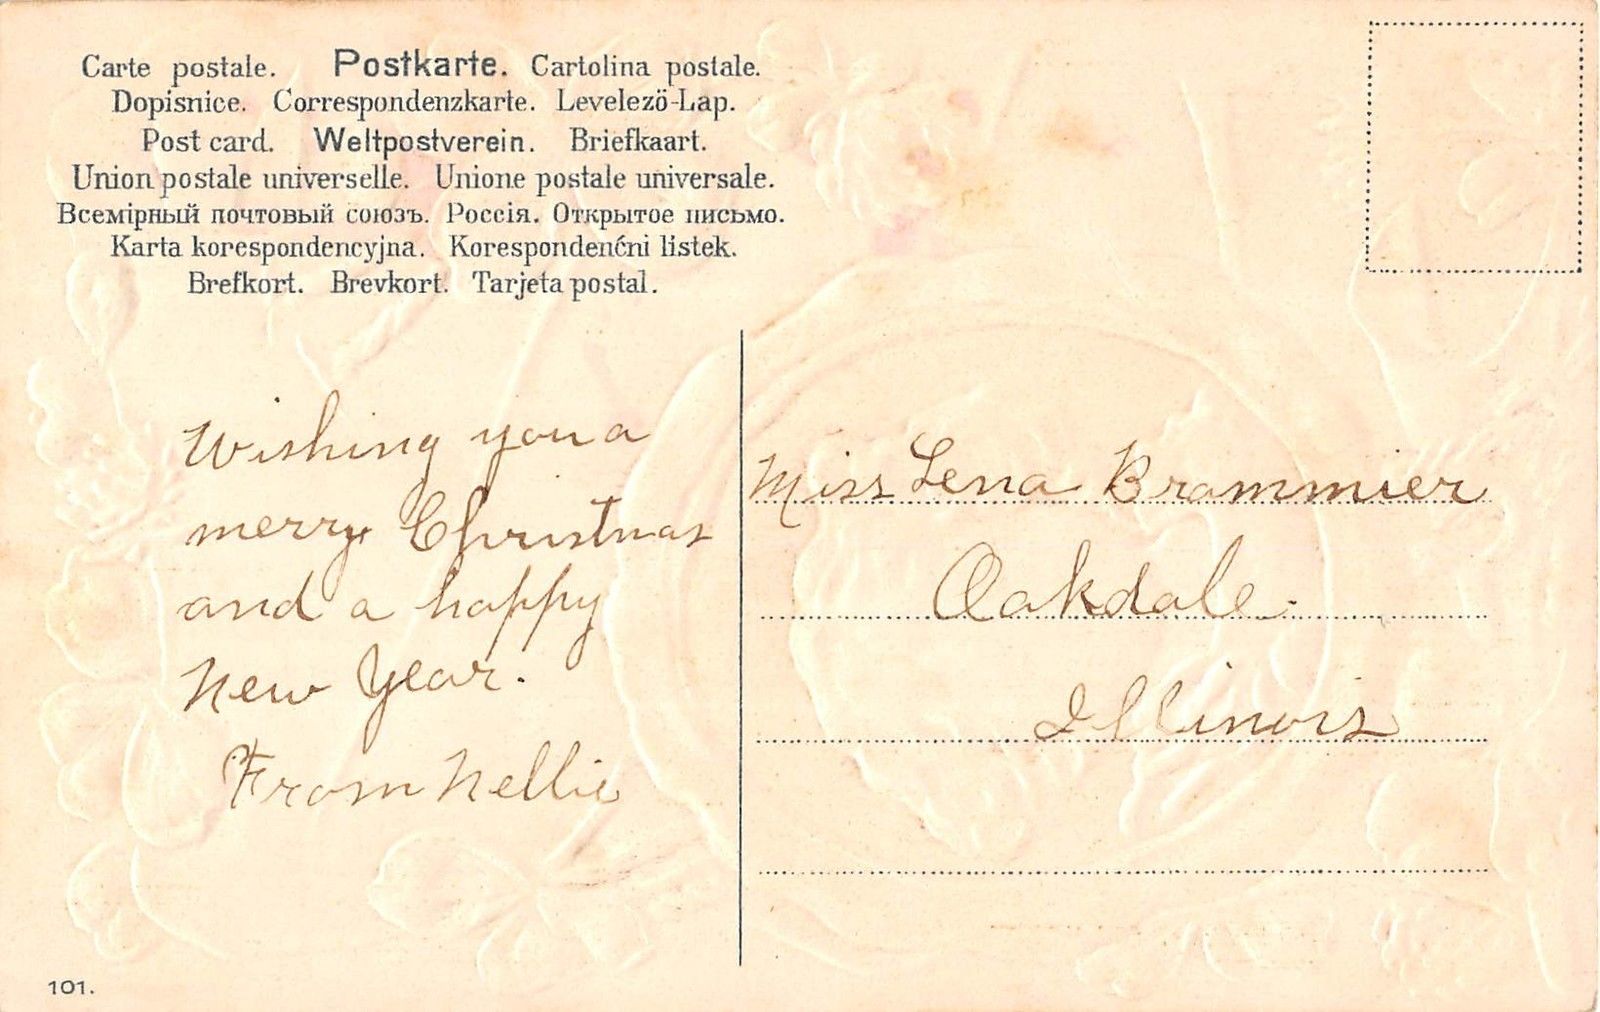 Carte postale. Postkarte. Cartolina postale.
Dopisnice. Correspondenzkarte. Levelezö-Lap.
Post card. Weltpostverein. Briefkaart.
Union postale universelle. Unione postale universale.
Всемірный почтовый союзъ. Россія. Открытое письмо.
Karta korespondencyjna. Korespondenćni listek.
Brefkort. Brevkort. Tarjeta postal.
Wishing you a
merry Christmas
and a happy
New Year.
From Nellie
Miss Lena Brammier
Oakdale.
Illinois
101.